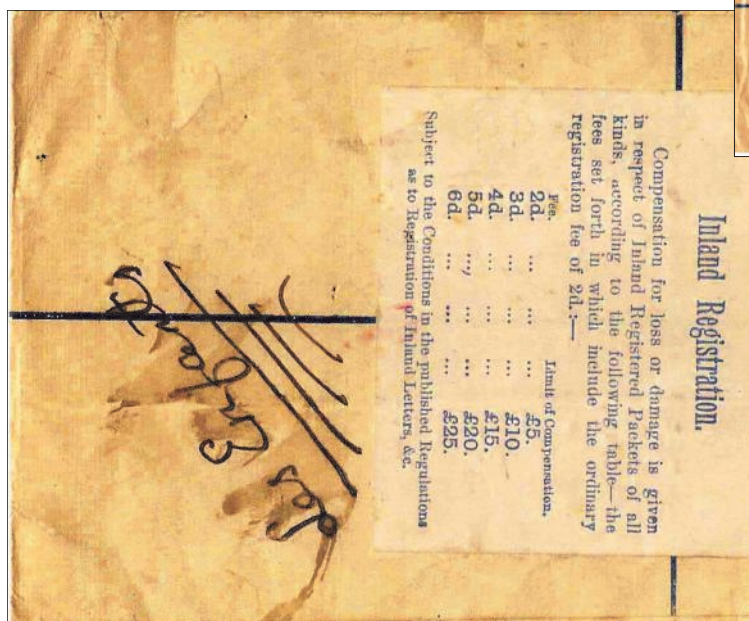 Inland Registration.
Compensation for loss or damage is given
in respect of Inland Registered Packets of all
kinds, according to the following table—the
fees set forth in which include the ordinary
registration fee of 2d.:—
Fee. Limit of Compensation.
2d. ... ... ... £5.
3d. ... ... ... £10.
4d. ... ... ... £15.
5d. ..., ... ... £20.
6d. ... ... ... £25.
Subject to the Conditions in the published Regulations
as to Registration of Inland Letters, &c.
Les Enfants